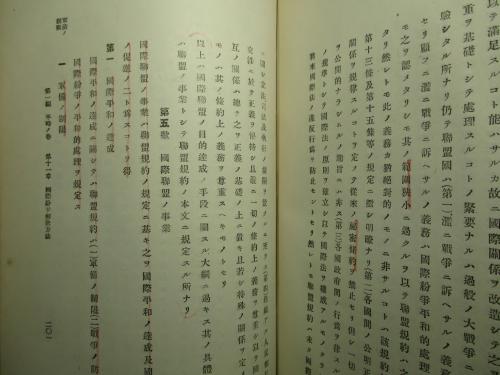 以テ滿足スルコト能ハサルカ故ニ國際關係ヲ改造シテ之
重ヲ基礎トシテ處理スルコトノ緊要ナルハ過般ノ大戰爭ニ
驗シタル所ナリ仍テ聯盟國ハ(第一)濫ニ戰爭ニ訴ヘサルノ義務
セリ顧フニ濫ニ戰爭ニ訴ヘサルノ義務ハ國際紛爭平和的處理
モ之ヲ認メタリシモ其ノ範圍狹小ニ過クルヲ以テ聯盟規約ハ之
タリ然レトモ此ノ義務カ猶絕對的ノモノニ非サルコトハ該規約
第十三條及第十五條等ノ規定ニ徵シ明瞭ナリ(第二)各國間ノ公明正
關係ヲ規律スルコトヲ定メテ從來ノ祕密條約ヲ禁止セリ但シ一切
ノ公開的ナラシムルノ趣旨ニハ非ス(第三)各國政府間ノ行爲ヲ律スル
ノ規準トシテ國際法ノ原則ヲ確立シ以テ國際法ヲ構成
將來國際法ノ違反行爲ヲ防止セントセリ然レトモ聯盟規約ハ未タ國際
交涉ニ於テ正義ヲ保持シ且嚴ニ一切ノ條約上ノ義務ヲ尊重シ以テ國
互ノ關係ハ總テ之ヲ正義ノ基礎ノ上ニ置キ且若シ特殊ノ關係ヲ定
モノハ其ノ條約上ノ義務ヲ尊重スヘキモノトセリ
以上ハ國際聯盟ノ目的達成ノ手段ニ關スル大綱ニ過キス其ノ具體
ハ聯盟ノ事業トシテ聯盟規約ノ本文ニ規定スル所ナリ
第五款 國際聯盟ノ事業
國際聯盟ノ事業ハ聯盟規約ノ規定ニ基キ之ヲ國際平和ノ達成及國
ノ促進ノ二ト爲スコトヲ得
第一 國際平和ノ達成
國際平和ノ達成ニ關シテハ聯盟規約ハ(一)軍備ノ制限(二)戰爭ノ防
國際紛爭ノ平和的處理ヲ規定ス
一 軍備ノ制限
第一編 平時ノ卷 第十一章 國際紛爭解決方法
二〇一
軍備ノ
制限